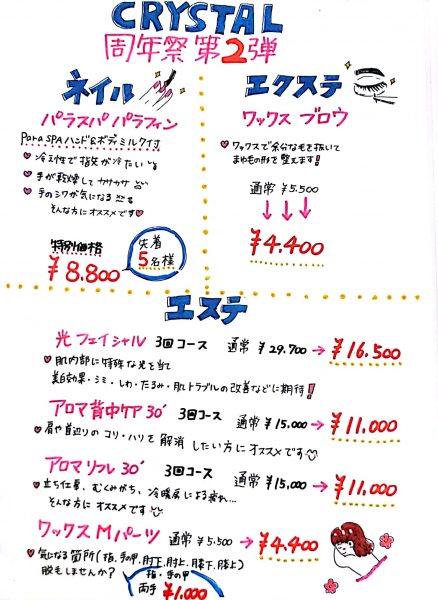 CRYSTAL
周年祭第2弾
ネイル
パラスパ パラフィン
Para SPAハンド&ボディミルク付
冷え性で指先が冷たい
手が乾燥してカサカサ
手のシワが気になる
そんな方にオススメです
特別価格
¥8.800
先着
5名様
エクステ
ワックス ブロウ
ワックスで余分な毛を抜いて
まゆ毛の形を整えます!
通常 ¥5.500
↓↓↓
¥4.400
エステ
光フェイシャル 3回コース 通常 ¥29.700→¥16.500
肌内部に特殊な光を当て
美白効果・シミ・しわ・たるみ・肌トラブルの改善などに期待!
アロマ背中ケア30′ 3回コース 通常 ¥15.000→¥11.000
肩や首辺りのコリ・ハリを解消したい方にオススメです
アロマリフレ30′ 3回コース 通常 ¥15,000→¥11.000
立ち仕事、むくみがち、冷暖房による疲れ…
そんな方にオススメです
ワックスMパーツ 通常 ¥5.500→¥4.400
気になる箇所(指、手の甲、肘下、肘上、膝下、膝上)
脱毛しませんか?
指・手の甲
両手 ¥1.000